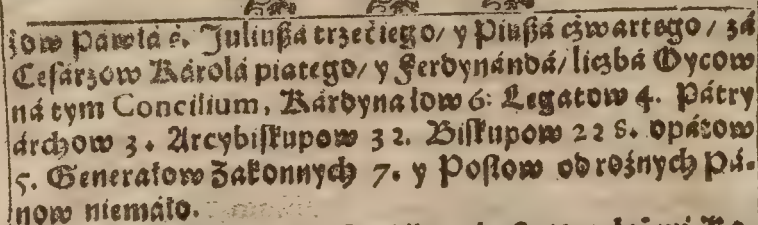 żow Páwłá 6. Juliußá trzećiego/ y Piußá cżwartego/ zá
Cesárzow Károlá piątego/ y Ferdynándá/ licżbá Oycow
ná tym Concilium, Kárdynałow 6: Legatow 4. Pátry
árchow 3. Arcybiskupow 32. Biskupow 228. opátow
5. Generałow Zakonnych 7. y Posłow od rożnych Pá-
now niemáło.